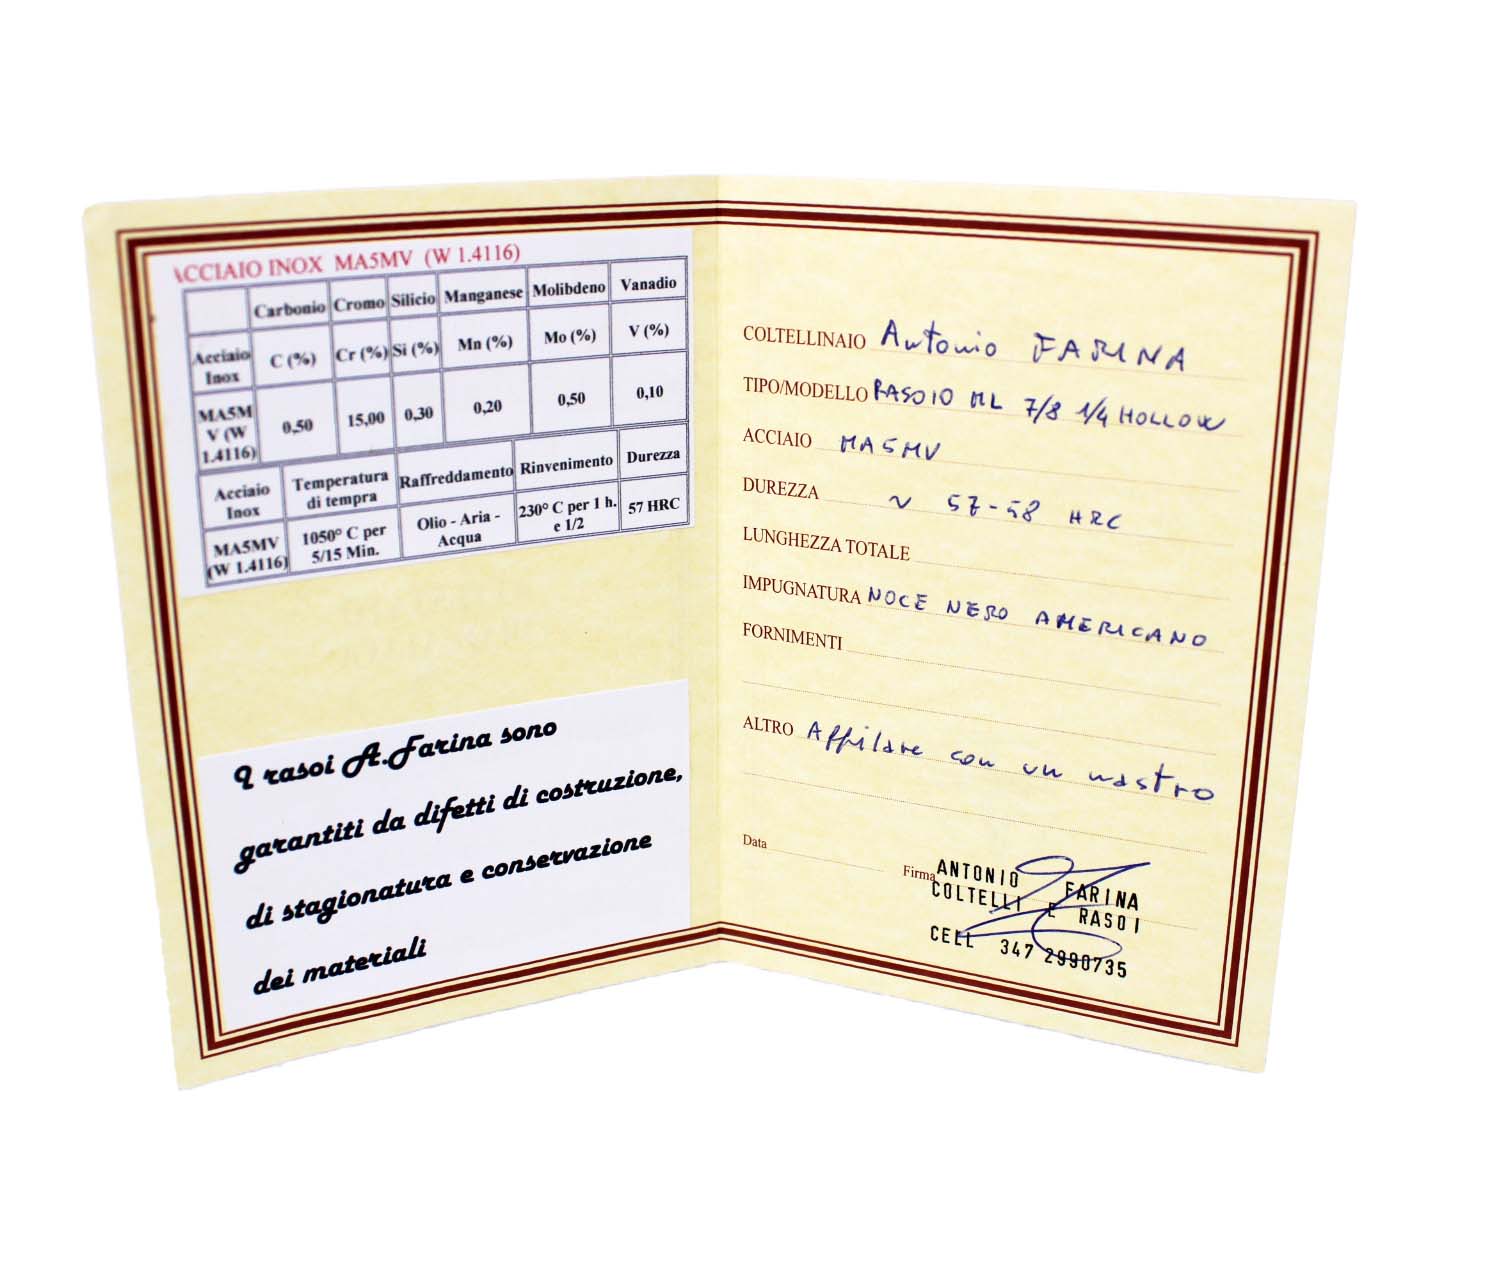 ACCIAIO INOX MA5MV (W 1.4116)
Carbonio Cromo Silicio Manganese Molibdeno Vanadio
Acciaio Inox C (%) Cr (%) Si (%) Mn (%) Mo (%) V (%)
MA5M V (W 1.4116) 0,50 15,00 0,30 0,20 0,50 0,10
Acciaio Inox Temperatura di tempra Raffreddamento Rinvenimento Durezza
MA5MV (W 1.4116) 1050° C per 5/15 Min. Olio - Aria - Acqua 230° C per 1 h. e 1/2 57 HRC
I rasoi A.Farina sono
garantiti da difetti di costruzione,
di stagionatura e conservazione
dei materiali
COLTELLINAIO Antonio FARINA
TIPO/MODELLO RASOIO ML 7/8 1/4 HOLLOW
ACCIAIO MA5MV
DUREZZA ~ 57-58 HRC
LUNGHEZZA TOTALE
IMPUGNATURA NOCE NERO AMERICANO
FORNIMENTI
ALTRO Affilare con un nastro
Data
Firma ANTONIO FARINA
COLTELLI E RASOI
CELL 347 2990735